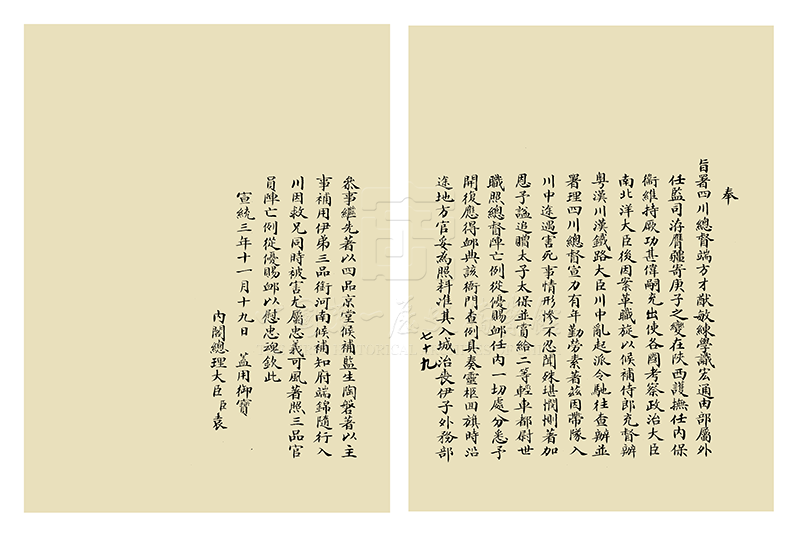 奉
旨署四川總督端方才猷敏練學識宏通由部屬外
任監司洊膺疆寄庚子之變在陝西護撫任內保
衛維持厥功甚偉嗣充出使各國考察政治大臣
南北洋大臣後因案革職旋以候補侍郎充督辦
粵漢川漢鐵路大臣川中亂起派令馳往查辦並
署理四川總督宣力有年勤勞素著茲因帶隊入
川中途遇害死事情形慘不忍聞殊堪憫惻著加
恩予謚追贈太子太保並賞給二等輕車都尉世
職照總督陣亡例從優賜卹任內一切處分悉予
開復應得卹典該衙門查例具奏靈柩回旗時沿
途地方官妥為照料准其入城治喪伊子外務部
七十九
叅事繼先著以四品京堂候補監生陶磐著以主
事補用伊弟三品銜河南候補知府端錦隨行入
川因救兄同時被害尤屬忠義可風著照三品官
員陣亡例從優賜卹以慰忠魂欽此
宣統三年十一月十九日 蓋用御寶
內閣總理大臣臣袁